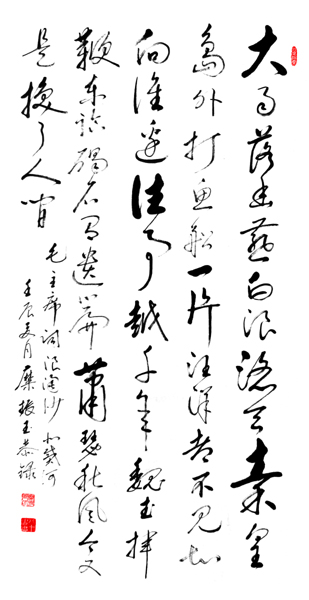 大雨落幽燕白浪滔天秦皇
岛外打鱼船一片汪洋都不见知
向谁边往事越千年魏武挥
鞭东临碣石有遗篇萧瑟秋风今又
是换了人间
毛主席词浪淘沙北戴河
壬辰夏月糜振玉恭录